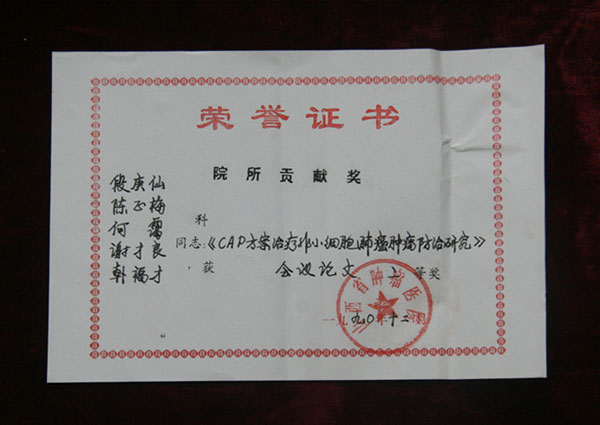 荣誉证书
院所贡献奖
段庚仙
陈正梅
何霭
谢才良
韩福才
科
同志:《CAP方案治疗非小细胞肺癌肿瘤防治研究》
获 会议论文 上 等奖
山西省肿瘤医院
一九九〇年十二月